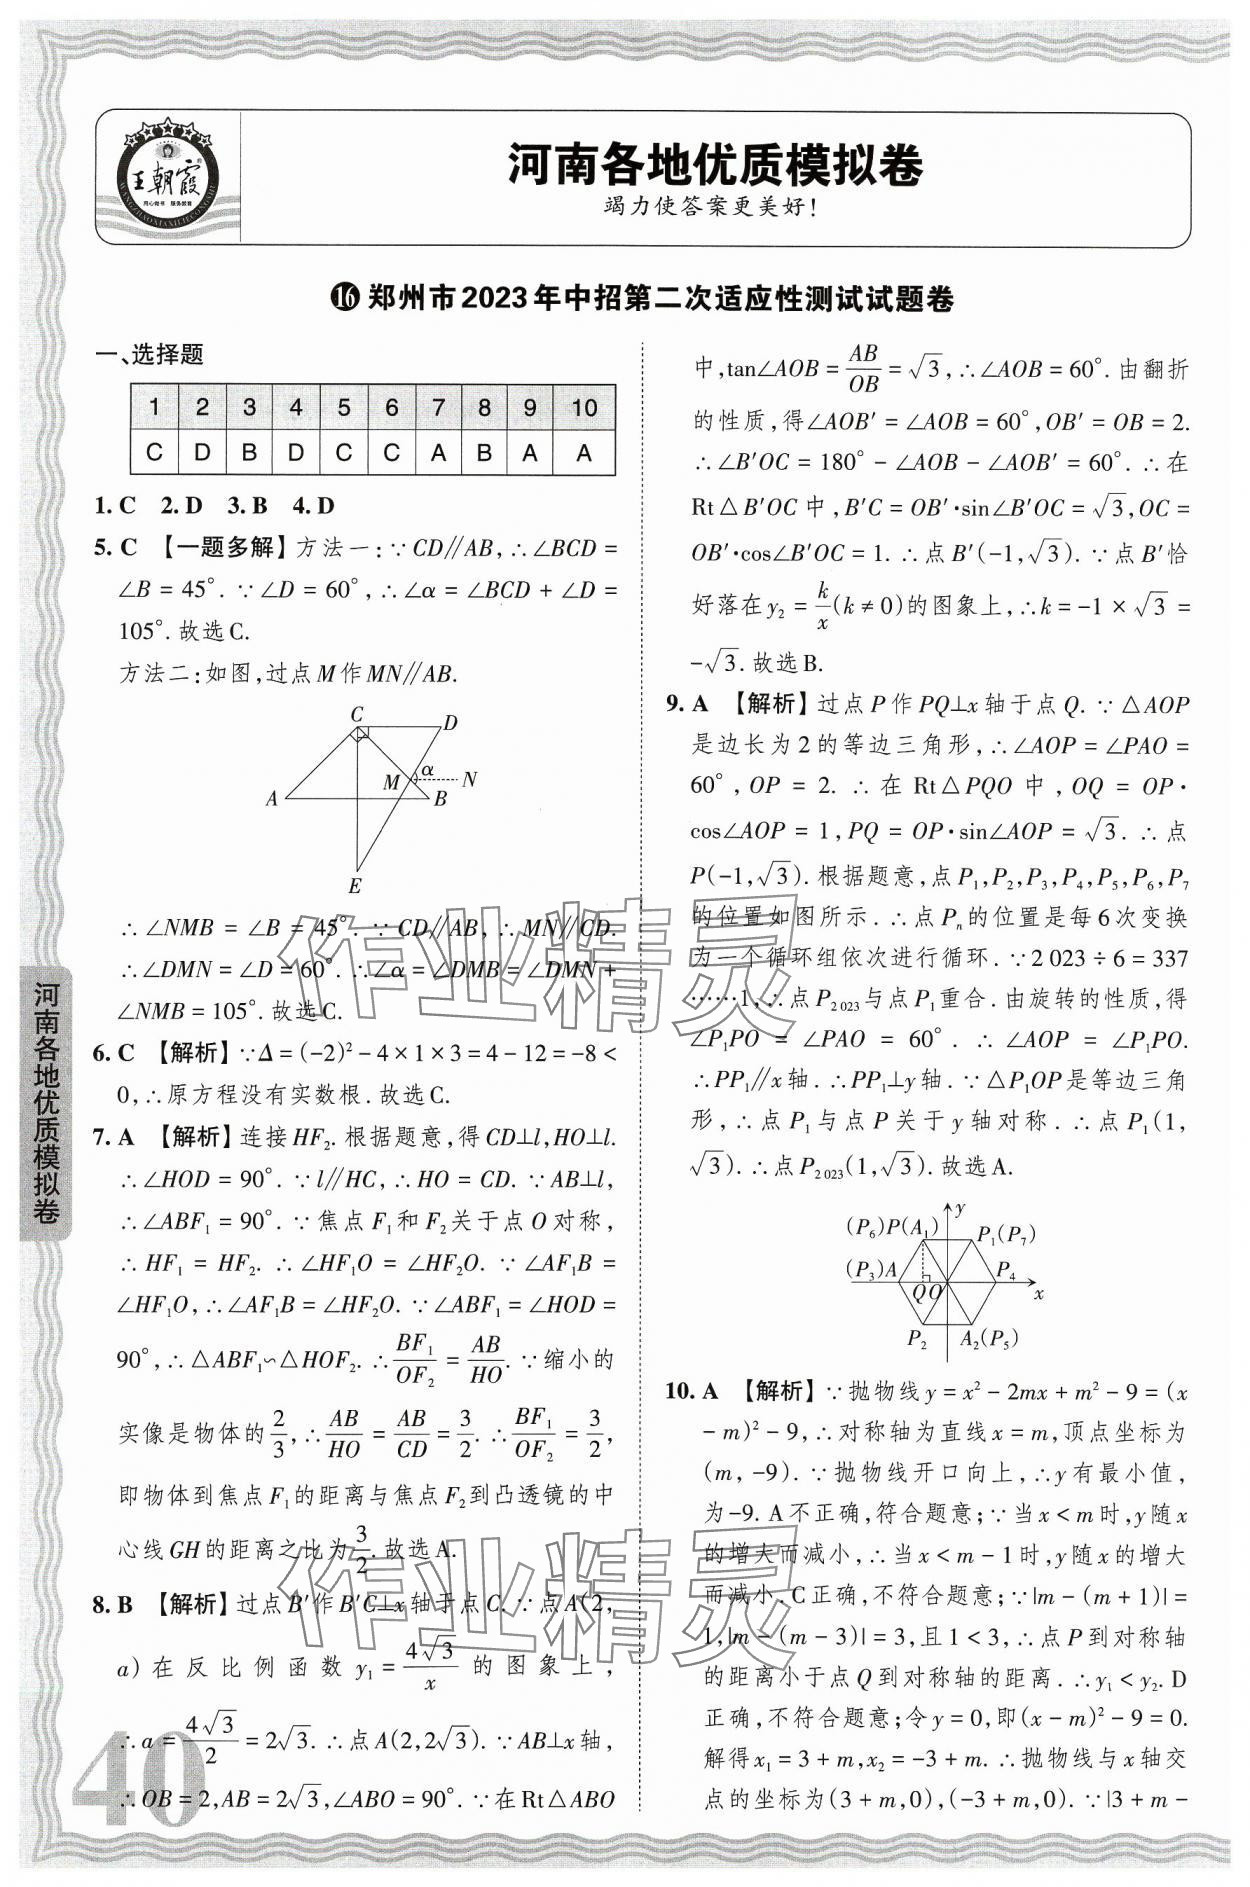 王朝霞
用心做书 服务教育
河南各地优质模拟卷
竭力使答案更美好!
⑯郑州市2023年中招第二次适应性测试试题卷
一、选择题
1 2 3 4 5 6 7 8 9 10
C D B D C C A B A A
1. C 2. D 3. B 4. D
5. C 【一题多解】方法一:∵CD∥AB,∴∠BCD =
∠B = 45°. ∵∠D = 60°,∴∠α = ∠BCD + ∠D =
105°. 故选C.
方法二:如图,过点M作MN∥AB.
C
D
M
α
N
A
B
E
∴∠NMB = ∠B = 45°. ∵CD∥AB,∴MN∥CD.
∴∠DMN = ∠D = 60°. ∴∠α = ∠DMB = ∠DMN +
∠NMB = 105°. 故选C.
6. C 【解析】∵Δ = (-2)² - 4×1×3 = 4 - 12 = -8 <
0,∴原方程没有实数根. 故选C.
7. A 【解析】连接HF₂. 根据题意,得CD⊥l,HO⊥l.
∴∠HOD = 90°. ∵l∥HC,∴HO = CD. ∵AB⊥l,
∴∠ABF₁ = 90°. ∵焦点F₁和F₂关于点O对称,
∴HF₁ = HF₂. ∴∠HF₁O = ∠HF₂O. ∵∠AF₁B =
∠HF₁O,∴∠AF₁B = ∠HF₂O. ∵∠ABF₁ = ∠HOD =
90°,∴△ABF₁∽△HOF₂. ∴BF₁/OF₂ = AB/HO. ∵缩小的
实像是物体的2/3,∴AB/HO = AB/CD = 3/2. ∴BF₁/OF₂ = 3/2,
即物体到焦点F₁的距离与焦点F₂到凸透镜的中
心线GH的距离之比为3/2. 故选A.
8. B 【解析】过点B′作B′C⊥x轴于点C. ∵点A(2,
a)在反比例函数y₁ = 4√3/x的图象上,
∴a = 4√3/2 = 2√3. ∴点A(2,2√3). ∵AB⊥x轴,
∴OB = 2,AB = 2√3,∠ABO = 90°. ∵在Rt△ABO
中,tan∠AOB = AB/OB = √3,∴∠AOB = 60°. 由翻折
的性质,得∠AOB′ = ∠AOB = 60°,OB′ = OB = 2.
∴∠B′OC = 180° - ∠AOB - ∠AOB′ = 60°. ∴在
Rt△B′OC中,B′C = OB′·sin∠B′OC = √3,OC =
OB′·cos∠B′OC = 1. ∴点B′(-1,√3). ∵点B′恰
好落在y₂ = k/x(k≠0)的图象上,∴k = -1×√3 =
-√3. 故选B.
9. A 【解析】过点P作PQ⊥x轴于点Q. ∵△AOP
是边长为2的等边三角形,∴∠AOP = ∠PAO =
60°,OP = 2. ∴在Rt△PQO中,OQ = OP·
cos∠AOP = 1,PQ = OP·sin∠AOP = √3. ∴点
P(-1,√3). 根据题意,点P₁,P₂,P₃,P₄,P₅,P₆,P₇
的位置如图所示. ∴点Pₙ的位置是每6次变换
为一个循环组依次进行循环. ∵2 023÷6 = 337
……1,∴点P₂ ₀₂₃与点P₁重合. 由旋转的性质,得
∠P₁PO = ∠PAO = 60°. ∴∠AOP = ∠P₁PO.
∴PP₁∥x轴. ∴PP₁⊥y轴. ∵△P₁OP是等边三角
形,∴点P₁与点P关于y轴对称. ∴点P₁(1,
√3). ∴点P₂ ₀₂₃(1,√3). 故选A.
y
(P₆)P(A₁)
P₁(P₇)
(P₃)A
P₄
Q O
x
P₂
A₂(P₅)
10. A 【解析】∵抛物线y = x² - 2mx + m² - 9 = (x
- m)² - 9,∴对称轴为直线x = m,顶点坐标为
(m,-9). ∵抛物线开口向上,∴y有最小值,
为-9. A不正确,符合题意;∵当x < m时,y随x
的增大而减小,∴当x < m - 1时,y随x的增大
而减小. C正确,不符合题意;∵|m - (m + 1)| =
1,|m - (m - 3)| = 3,且1 < 3,∴点P到对称轴
的距离小于点Q到对称轴的距离. ∴y₁ < y₂. D
正确,不符合题意;令y = 0,即(x - m)² - 9 = 0.
解得x₁ = 3 + m,x₂ = -3 + m. ∴抛物线与x轴交
点的坐标为(3 + m,0),(-3 + m,0). ∵|3 + m -
河南各地优质模拟卷
40
作业精灵
作业精灵